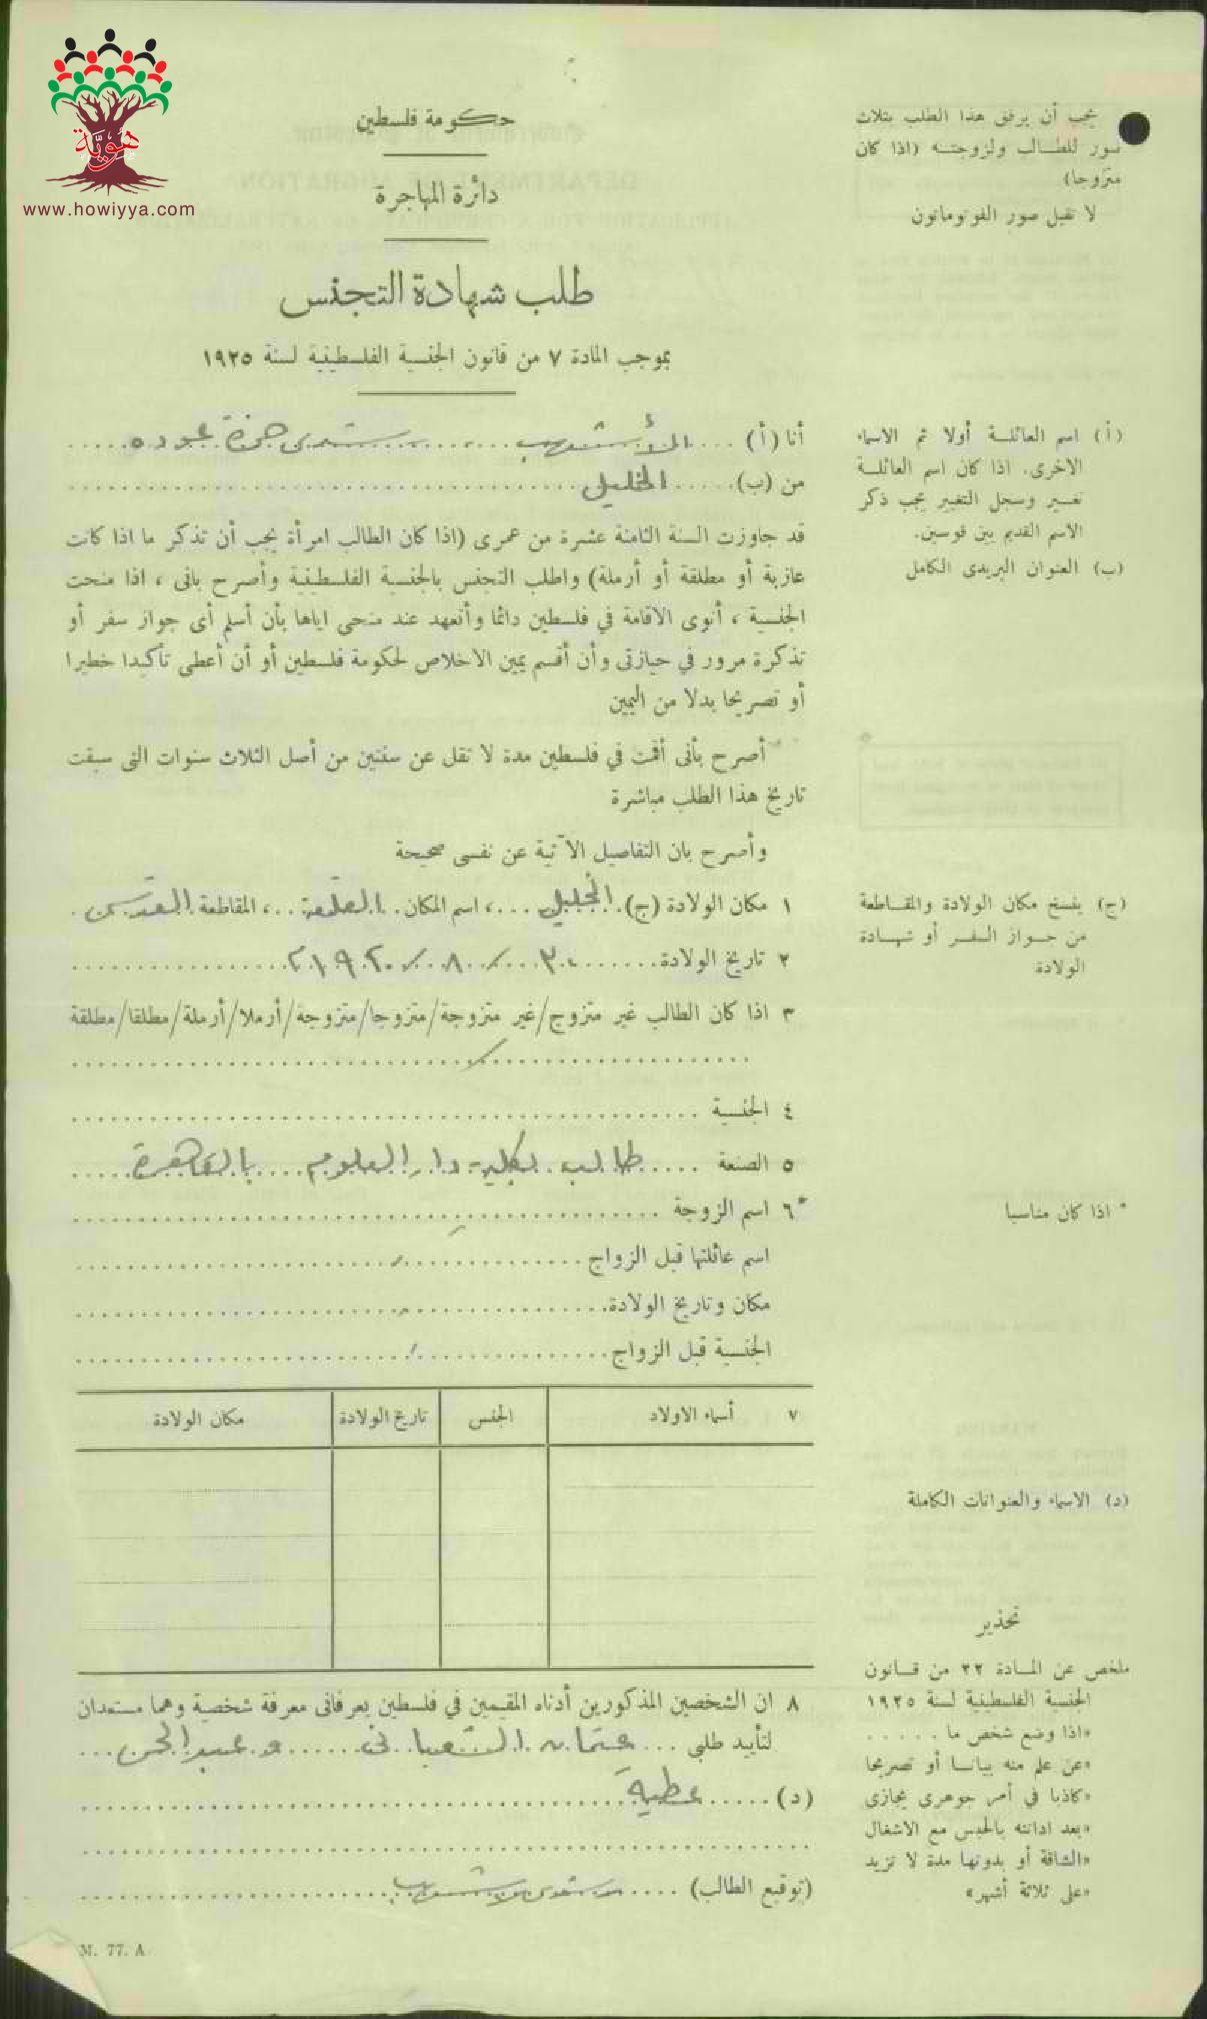 هوية
www.howiyya.com
حكومة فلسطين
دائرة المهاجرة
طلب شهادة التجنس
بموجب المادة ٧ من قانون الجنسية الفلسطينية لسنة ١٩٢٥
يجب أن يرفق هذا الطلب بثلاث
صور للطالب ولزوجته (اذا كان
متزوجا)
لا تقبل صور الفوتوماتون
أنا (أ) الأشهب حمزة عوده
من (ب) الخليل
قد جاوزت السنة الثامنة عشرة من عمرى (اذا كان الطالب امرأة يجب أن تذكر ما اذا كانت
عازبة أو مطلقة أو أرملة) واطلب التجنس بالجنسية الفلسطينية وأصرح بانى ، اذا منحت
الجنسية ، أنوى الاقامة في فلسطين دائما وأتعهد عند منحى اياها بأن أسلم أى جواز سفر أو
تذكرة مرور في حيازتى وأن أقسم يمين الاخلاص لحكومة فلسطين أو أن أعطى تأكيدا خطيرا
أو تصريحا بدلا من اليمين
أصرح بأنى أقمت في فلسطين مدة لا تقل عن سنتين من أصل الثلاث سنوات التى سبقت
تاريخ هذا الطلب مباشرة
وأصرح بان التفاصيل الآتية عن نفسى صحيحة
(أ) اسم العائلة أولا ثم الاسماء
الاخرى. اذا كان اسم العائلة
تغير وسجل التغيير يجب ذكر
الاسم القديم بين قوسين.
(ب) العنوان البريدى الكامل
١ مكان الولادة (ج) الخليل ، اسم المكان القلعة ، المقاطعة القدس
٢ تاريخ الولادة ٣٠ / ٨ / ١٩٢٠
٣ اذا كان الطالب غير متزوج/غير متزوجة/متزوجا/متزوجة/أرملا/أرملة/مطلقا/مطلقة
٤ الجنسية
٥ الصنعة طالب بكلية دار العلوم بالقاهرة
*٦ اسم الزوجة
اسم عائلتها قبل الزواج
مكان وتاريخ الولادة
الجنسية قبل الزواج
(ج) ينسخ مكان الولادة والمقاطعة
من جواز السفر أو شهادة
الولادة
* اذا كان مناسبا
٧ أسماء الاولاد الجنس تاريخ الولادة مكان الولادة
(د) الاسماء والعنوانات الكاملة
٨ ان الشخصين المذكورين أدناه المقيمين في فلسطين يعرفانى معرفة شخصية وهما مستعدان
لتأييد طلبي عثمان و عبد الحى
(د) عطية
(توقيع الطالب)
تحذير
ملخص عن المادة ٢٢ من قانون
الجنسية الفلسطينية لسنة ١٩٢٥
«اذا وضع شخص ما . . . . .
«عن علم منه بيانا أو تصريحا
«كاذبا في أمر جوهرى يجازى
«بعد ادانته بالحبس مع الاشغال
«الشاقة أو بدونها مدة لا تزيد
«على ثلاثة أشهر»
M. 77. A